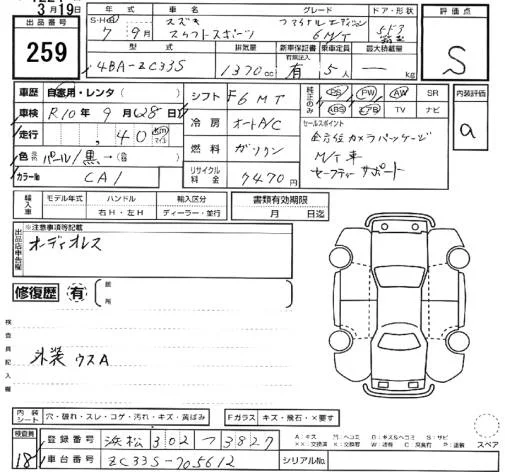 3月19日
出品番号 259
年式 S・H・R 7年 9月
車名 スズキ スイフトスポーツ
グレード ファイナルエディション 6M/T
ドア・形状 5ドア
評価点 S
型式 4BA-ZC33S
排気量 1370cc
新車保証書 有無広入 有
乗車定員 5人
最大積載量 kg
車歴 自家用・レンタ( )
車検 R10年 9月 28日
走行 40 km マイル
色 元色 パール/黒 → (色替)
カラーNo CA1
シフト F6MT
冷房 オートA/C
燃料 ガソリン
リサイクル料金 7470円
純正のみ PS PW AW SR
ABS エアB TV ナビ
セールスポイント
全方位カメラパッケージ
M/T車
セーフティサポート
内装評価 a
輸入車 モデル年式 ハンドル 輸入区分
年 右H・左H ディーラー・並行
書類有効期限 月 日迄
出品店申告欄
※注意事項等記載
オーディオレス
修復歴 有 箇所
検査員記入欄
外装 ウスA
内装シート 穴・破れ・スレ・コゲ・汚れ・キズ・黄ばみ
Fガラス キズ・飛石・×要す
検査員 18
登録番号 浜松 302 つ 3827
車台番号 ZC33S-705612
シリアルNo.
スペア